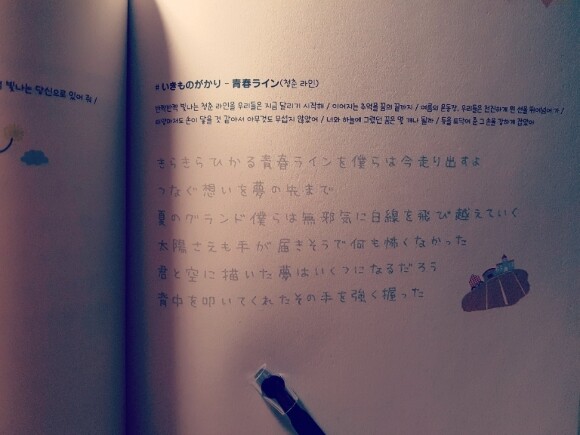 빛나는 당신으로 있어 줘 /
# いきものがかり - 青春ライン(청춘 라인)
반짝반짝 빛나는 청춘 라인을 우리들은 지금 달리기 시작해 / 이어지는 추억을 꿈의 끝까지 / 여름의 운동장, 우리들은 천진하게 흰 선을 뛰어넘어 가 /
태양마저도 손이 닿을 것 같아서 아무것도 무섭지 않았어 / 너와 하늘에 그렸던 꿈은 몇 개나 될까 / 등을 토닥여 준 그 손을 강하게 잡았어
きらきらひかる青春ラインを僕らは今走り出すよ
つなぐ想いを夢の先まで
夏のグランド僕らは無邪気に白線を飛び越えていく
太陽さえも手が届きそうで何も怖くなかった
君と空に描いた夢はいくつになるだろう
背中を叩いてくれたその手を強く握った